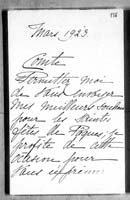 Mars, 1923.
Comte
Permettez moi
de vous envoyer
mes meilleurs souhaits
pour les saintes
fêtes de Pâques; je
profite de cette
occasion pour
vous exprimer